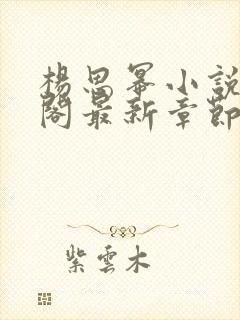 楊思冪小說
閣最新章節
紫雲木